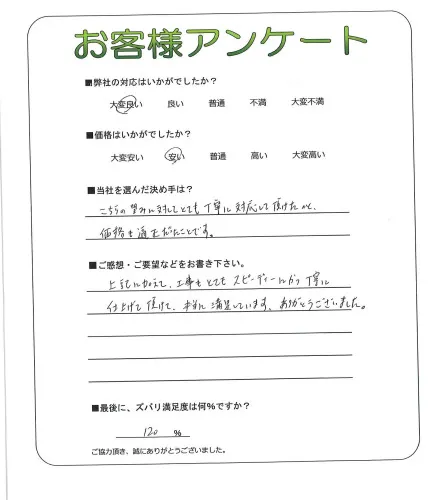 お客様アンケート
■弊社の対応はいかがでしたか?
大変良い 良い 普通 不満 大変不満
■価格はいかがでしたか?
大変安い 安い 普通 高い 大変高い
■当社を選んだ決め手は?
こちらの望みに対してとても丁寧に対応して頂けたのと、
価格も適正だったことです。
■ご感想・ご要望などをお書き下さい。
上記に加えて、工事もとてもスピーディーにかつ丁寧に
仕上げて頂けて、本当に満足しています。ありがとうございました。
■最後に、ズバリ満足度は何%ですか?
120 %
ご協力頂き、誠にありがとうございました。